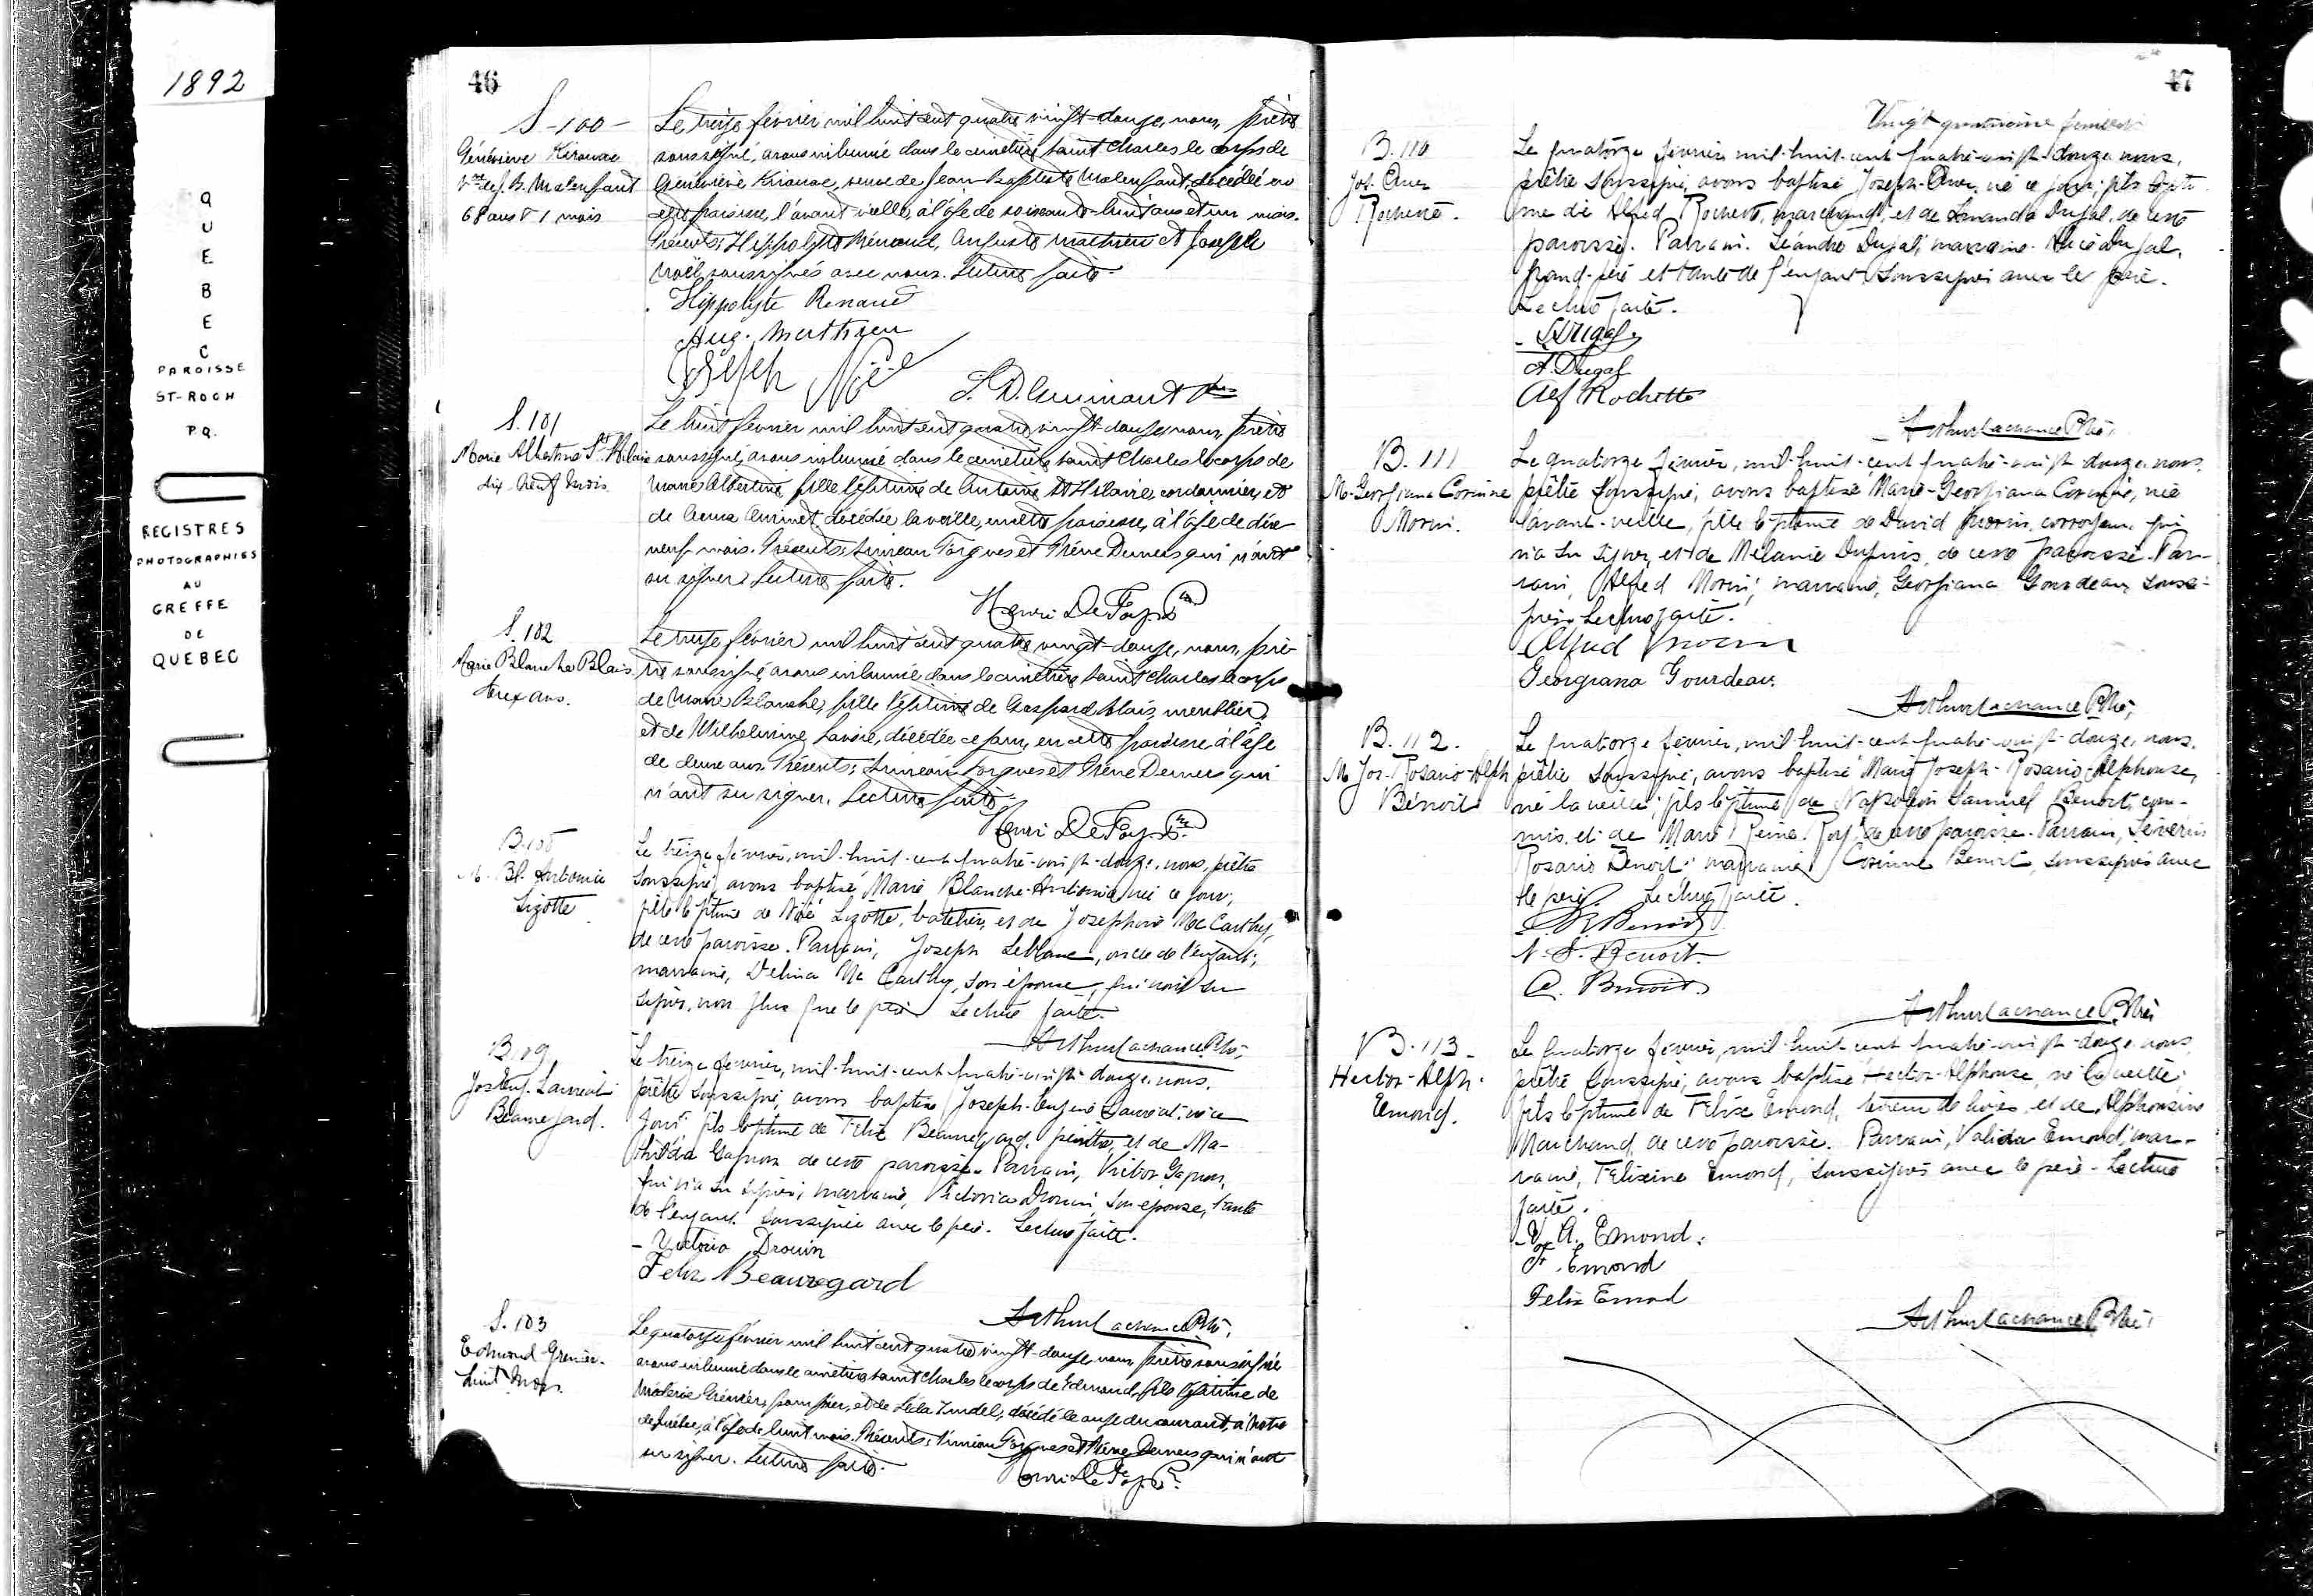 1892
QUEBEC
PAROISSE
ST-ROCH
P.Q.
REGISTRES
PHOTOGRAPHIES
AU
GREFFE
DE
QUEBEC
46
S-100-
Généviève Kirouac
Vve de J. B. Malenfant
68 ans & 1 mois
Le treize février mil huit cent quatre vingt-douze, nous, prêtre
soussigné, avons inhumé dans le cimetière Saint Charles le corps de
Généviève Kirouac, veuve de Jean-Baptiste Malenfant, décédée en
cette paroisse, l'avant veille, à l'âge de soixante-huit ans et un mois.
Présents: Hippolyte Renaud, Auguste Mathieu et Joseph
Noël, soussignés avec nous. Lecture faite.
Hippolyte Renaud
Aug. Mathieu
Joseph Noël
S. 101
Marie Albertine St Hilaire
dix-neuf mois
Le huit février mil huit cent quatre vingt-douze, nous, prêtre
soussigné, avons inhumé dans le cimetière Saint Charles le corps de
Marie Albertine, fille légitime de Antoine St Hilaire, cordonnier, et
de décédée la veille, en cette paroisse, à l'âge de dix-
neuf mois. Présents: Siméon Forgues et Pierre Demers qui n'ont
su signer. Lecture faite.
Henri DeFoy Ptre
S. 102
Marie Blanche Blais
deux ans.
Le treize février mil huit cent quatre vingt-douze, nous, prê-
tre soussigné, avons inhumé dans le cimetière Saint Charles le corps
de Marie Blanche, fille légitime de Gaspard Blais, meublier,
et de Wilhelmine Savoie, décédée ce jour, en cette paroisse à l'âge
de deux ans. Présents: Siméon Forgues et Pierre Demers qui
n'ont su signer. Lecture faite.
Henri DeFoy Ptre
M. Bl. Antonia
Lizotte
Le treize février, mil-huit-cent-quatre-vingt-douze, nous, prêtre
soussigné, avons baptisé Marie Blanche-Antonia, née ce jour,
fille légitime de Noé Lizotte, batelier, et de Josephine McCarthy,
de cette paroisse. Parrain, Joseph Leblanc, oncle de l'enfant;
marraine, Delina McCarthy, son épouse, qui n'ont su
signer, non plus que le père. Lecture faite.
Arthur Lachance Ptre
B. 109
Jos Eug. Lauréat
Beauregard.
Le treize février, mil-huit-cent-quatre-vingt-douze, nous,
prêtre soussigné, avons baptisé Joseph-Eugène Lauréat, né ce
jour, fils légitime de Félix Beauregard, peintre, et de Ma-
thilda Gagnon de cette paroisse. Parrain, Victor Gagnon,
qui n'a su signer; marraine, Victoria Drouin, son épouse, tante
de l'enfant, soussignée avec le père. Lecture faite.
Victoria Drouin
Felix Beauregard
Arthur Lachance Ptre
S. 103
Edmond Grenier
huit mois
Le quatorze février mil huit cent quatre vingt-douze, nous, prêtre soussigné
avons inhumé dans le cimetière Saint Charles le corps de Edmond, fils légitime de
Grenier, pompier, et de Léda Trudel, décédé le onze du courant, à Notre
de Québec, à l'âge de huit mois. Présents: Siméon Forgues et Pierre Demers qui n'ont
su signer. Lecture faite.
Henri DeFoy Ptre
47
B. 110
Jos. Omer
Rochette.
Le quatorze février, mil-huit-cent-quatre-vingt-douze, nous,
prêtre soussigné, avons baptisé Joseph-Omer, né ce jour, fils légiti-
me de Alfred Rochette, marchand, et de Dugal, de cette
paroisse. Parrain, Léandre Dugal, marraine, Alice Dugal,
grand-père et tante de l'enfant, soussignés avec le père.
Lecture faite.
L. Dugal
A. Dugal
Alf Rochette
Arthur Lachance Ptre
B. 111
M. Georgiana Corinne
Morin.
Le quatorze février, mil-huit-cent-quatre-vingt-douze, nous,
prêtre soussigné, avons baptisé Marie-Georgiana Corinne, née
l'avant-veille, fille légitime de David Morin, corroyeur, qui
n'a su signer, et de Mélanie Dupuis, de cette paroisse. Par-
rain, Alfred Morin; marraine, Georgiana Gourdeau, soussi-
gnés. Lecture faite.
Alfred Morin
Georgiana Gourdeau
Arthur Lachance Ptre
B. 112.
M Jos. Rosario-Alph
Benoit
Le quatorze février, mil-huit-cent-quatre-vingt-douze, nous,
prêtre soussigné, avons baptisé Marie Joseph-Rosario-Alphonse,
né la veille, fils légitime de Napoléon Samuel Benoit, com-
mis, et de Marie Reine Roy, de cette paroisse. Parrain, Séverin
Rosario Benoit; marraine, Corinne Benoit, soussignés avec
le père. Lecture faite.
S. R. Benoit
N. S. Benoit
C. Benoit
Arthur Lachance Ptre
B. 113-
Hector-Alph.
Emond.
Le quatorze février, mil-huit-cent-quatre-vingt-douze, nous,
prêtre soussigné, avons baptisé Hector-Alphonse, né la veille,
fils légitime de Félix Emond, de bois, et de Alphonsine
Marchand, de cette paroisse. Parrain, Valida Emond, mar-
raine, Félixine Emond, soussignés avec le père. Lecture
faite.
V. A. Emond.
F. Emond
Felix Emond
Arthur Lachance Ptre